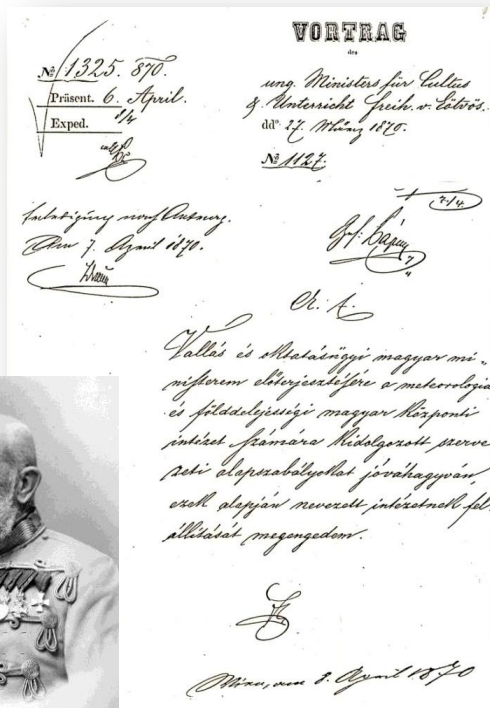 VORTRAG
des
No 1325. 870.
Präsent. 6. April.
Exped. 8/4
ung. Ministers für Cultus
& Unterricht Freih. v. Eötvös.
ddo. 27. März 1870.
No 1127.
7/4
Erledigung nach Antrag.
Am 7. April 1870.
A. E.
Vallás és oktatásügyi magyar mi-
nisterem előterjesztésére a meteorologiai
és földdelejességi magyar központi
intézet számára kidolgozott szerve-
zeti alapszabályokat jóváhagyván
ezek alapján nevezett intézetnek fel-
állitását megengedem.
Wien, am 8. April 1870